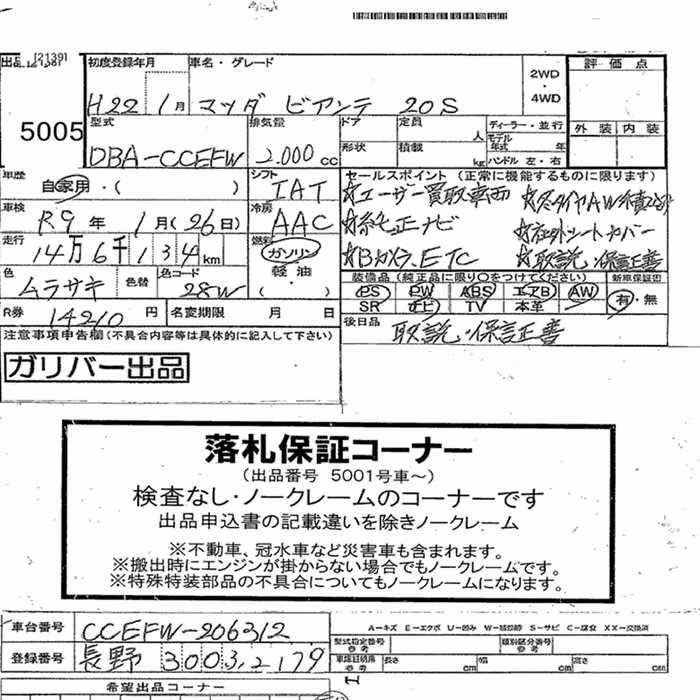 出品
5005
初度登録年月 車名・グレード
H22 1月 マツダ ビアンテ 20S
2WD
・
4WD
評価点
外装 内装
型式 排気量 ドア 定員 ディーラー・並行
DBA-CCEFW 2.000cc 形状 積載 人 kg
モデル年式 年
ハンドル 左・右
車歴 自家用・( )
シフト IAT
車検 R9年 1月(26日)
冷房 AAC
走行 14万6千134km
燃料 ガソリン 軽油 ・( )
色 ムラサキ 色替 色コード 28W
R券 14210円 名変期限 月 日
セールスポイント (正常に機能するものに限ります)
☆ユーザー買取車両
☆純正ナビ
☆Bカメラ、ETC
☆社外シートカバー
☆取説・保証書
装備品(純正品に限り○をつけてください) 新車保証書
PS PW ABS エアB AW 有・無
SR ナビ TV 本革
後日品 取説・保証書
注意事項申告欄(不具合内容等は具体的に記入して下さい)
ガリバー出品
落札保証コーナー
(出品番号 5001号車~)
検査なし・ノークレームのコーナーです
出品申込書の記載違いを除きノークレーム
※不動車、冠水車など災害車も含まれます。
※搬出時にエンジンが掛からない場合でもノークレームです。
※特殊特装部品の不具合についてもノークレームになります。
車台番号 CCEFW-206312
登録番号 長野 300 3,2179
A-キズ E-エクボ U-凹み W-補修跡 S-サビ C-腐食 XX-交換済
型式指定番号 参考 類別区分番号 参考
車庫証明用 参考 長さ cm 幅 cm 高さ cm
希望出品コーナー